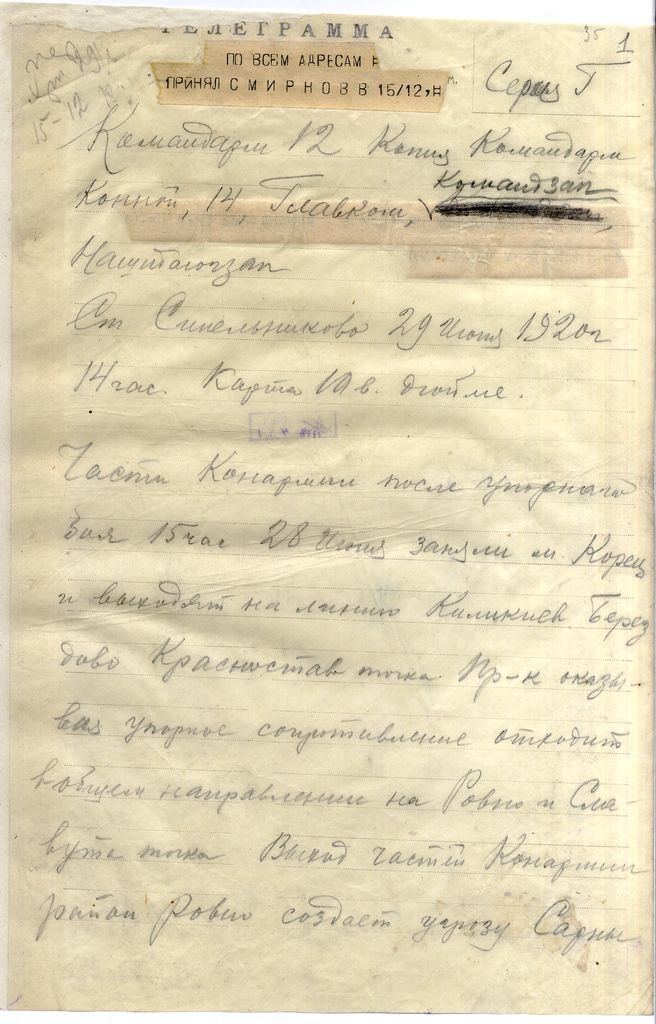 ТЕЛЕГРАММА
35 1
ПО ВСЕМ АДРЕСАМ =
ПРИНЯЛ СМИРНОВ В 15/12,=
Серия Г
15-12
Командарм 12 Копия Командарм
Командзап
Конной, 14, Главком,
Наштаюгзап
Ст Синельниково 29 Июня 1920г
14 час. Карта 10 в. дюйме.
Части Конармии после упорнаго
боя 15 час 28 Июня заняли м. Корец
и выходят на линию Киликиев Берез
дово Красностав точка Пр-к оказы-
вая упорное сопротивление отходит
в общем направлении на Ровно и Сла-
вута точка Выход частей Конармии
район Ровно создает угрозу Сарны